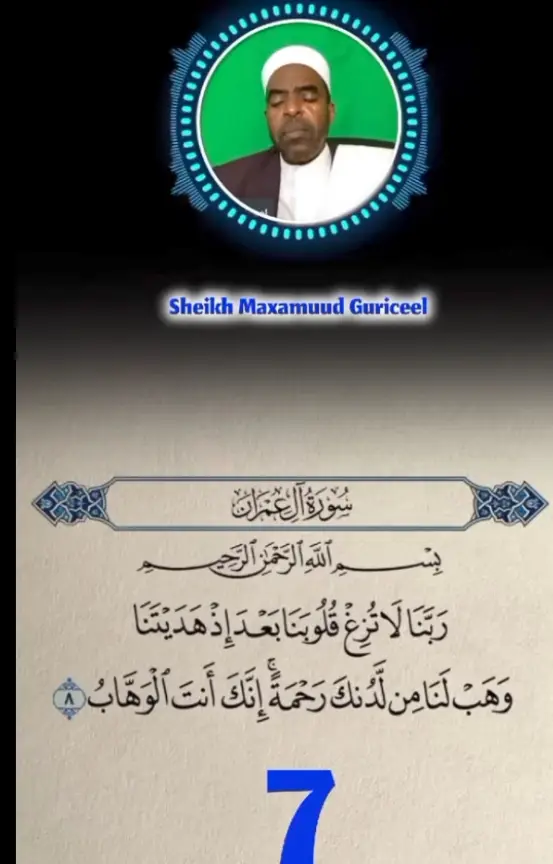 Sheikh Maxamuud Guriceel
سُورَةُ آلِ عِمْرَان
بِسْمِ ٱللَّهِ ٱلرَّحْمَٰنِ ٱلرَّحِيمِ
رَبَّنَا لَا تُزِغْ قُلُوبَنَا بَعْدَ إِذْ هَدَيْتَنَا
وَهَبْ لَنَا مِن لَّدُنكَ رَحْمَةً ۚ إِنَّكَ أَنتَ ٱلْوَهَّابُ ٨
7